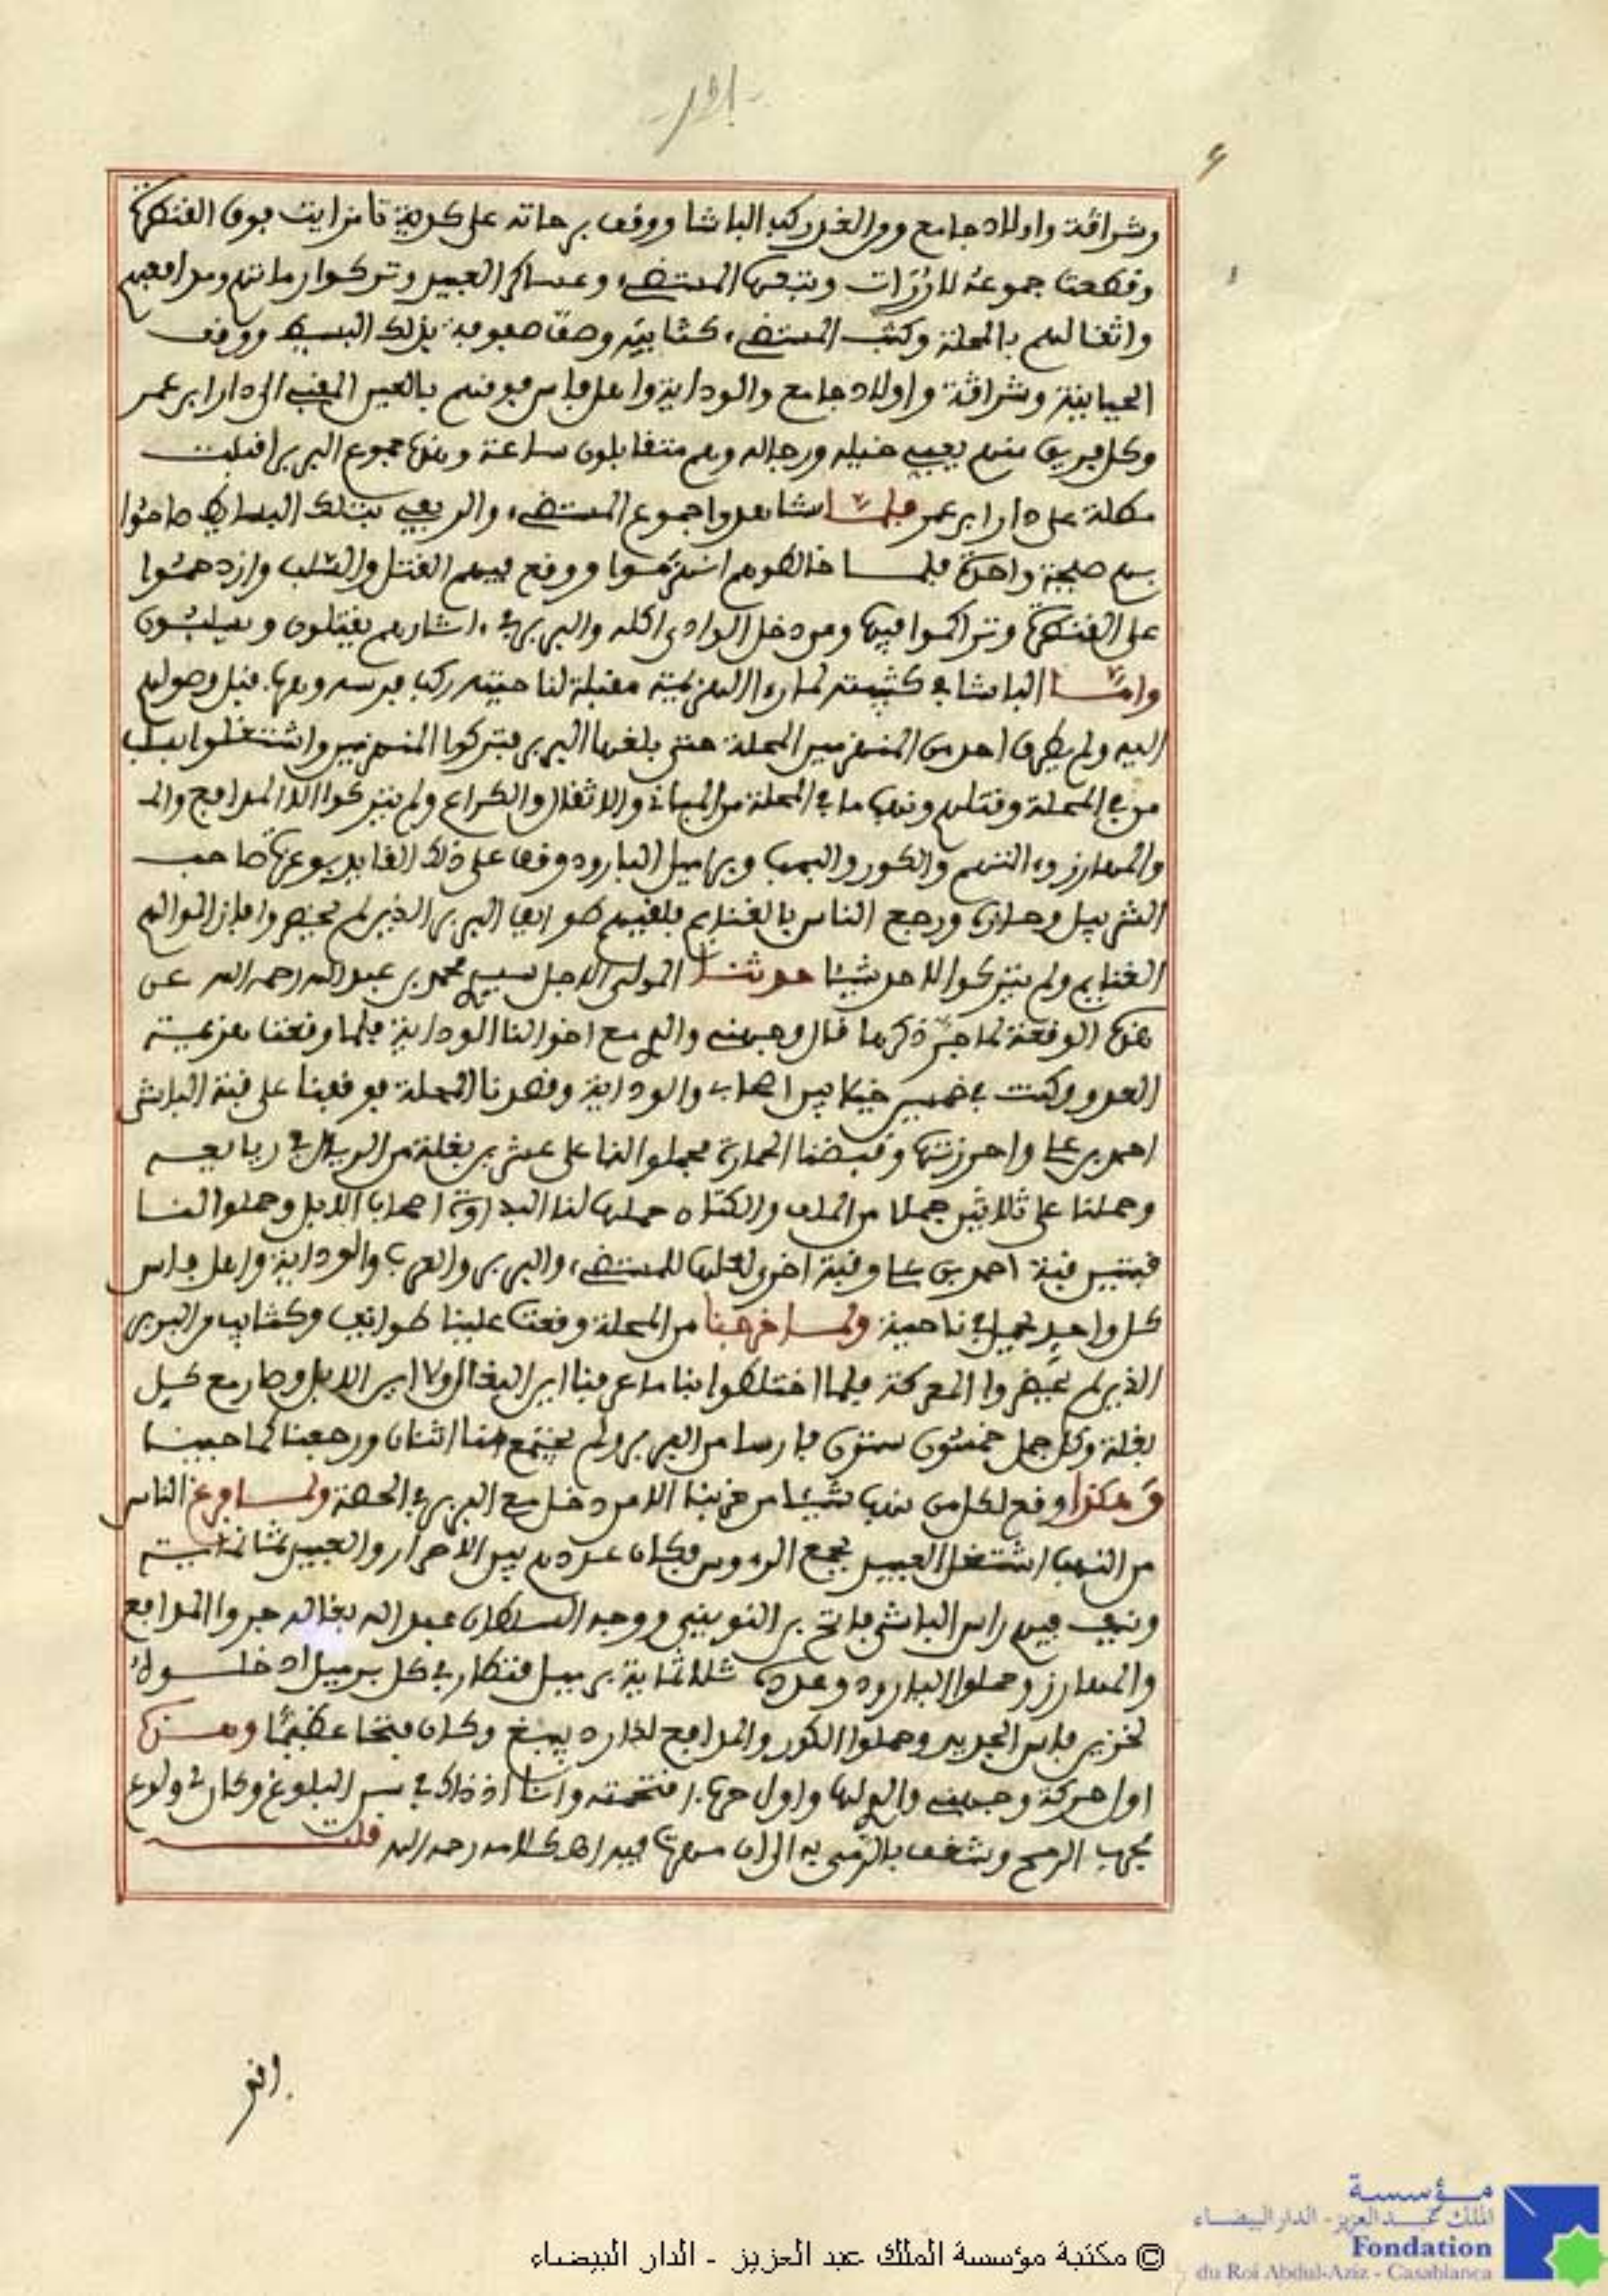 وشراقة واولاد جامع ومن الغد ركب الباشا ووقف برحاته على كدية تامزايت فوق القنطرة
وقطعت جموعه للدزات وتبعها المستضيء وعساكر العبيد وتركوا رماتهم ومدافعهم
واثقالهم بالمحلة وكتب المستضيء كتائبه وصف صفوفه بذلك البسيط ووقف
الحياينة وشراقة واولاد جامع والودايه واهل فاس موقفهم بالعين المقبي الى دار ابن عمر
وكل فريق منهم يعبي خيله ورجاله وهم متقابلون ساعة وبهذا جموع البربر اقبلت
مطلة على دار ابن عمر فلما شاهدوا جموع المستضيء والريفي بتلك البسائط صاحوا
بهم صيحة واحدة فلما خالطوهم انهزموا ووقع فيهم القتل والسلب وازدحموا
على القنطرة وتراكموا فيها ومن دخل الوادي اكله والبربر في اثارهم يقتلون ويسلبون
واما الباشا في كثيبته لما راى الهزيمة مقبلة لناحيته ركب فرسه وهرب قبل وصولهم
اليه ولم يطرق احد من المنهزمين المحلة حتى بلغها البربر فتركوا المنهزمين واشتغلوا بسلب
من في المحلة وقتلهم ونهب ما في المحلة من المباني والاثقال والكراع ولم يتركوا الا المدافع والم
والمهارز والكور والبنب وبراميل البارود وقف على ذلك القايد بوعزة صاحب
الشربيل وحازه ورجع الناس بالغنايم فلقيهم طوايف البربر الذين لم يحضروا فازالوا لهم
الغنايم ولم يتركوا لاحد شيئا حدثنا المولى الاجل سيدي محمد بن عبد الله رحمه الله عن
هذه الوقعة لما جر ذكرها قال وجهني والدي مع اخوالنا الودايه فلما وقعت هزيمة
العدو وكنت في خمسين خيلا بين اصحابي والودايه وقصدنا المحلة فوقفنا على قبة الباشا
احمد بن علي واحرزتها وقبضنا الحمارة فحملوا لنا على عشرين بغلة من الريال في ربايعه
وحملنا على ثلاثين جملا من الملف والكتان حملها لنا البداوة اصحاب الابل وحملوا لنا
قبتين قبة احمد بن علي وقبة اخرى لعلها للمستضيء والبربر والعرب والودايه واهل فاس
كل واحد يحمل في ناحية ولما خرجنا من المحلة وقعت علينا طوايف وكتايب من البربر
الذين لم يحضروا المعركة فلما اختلطوا بنا ما عرفنا اين البغال ولا اين الابل وصار مع كل
بغلة وكل جمل خمسون ستون فارسا من البربر ولم يجتمع منا اثنان ورجعنا كما جينا
وهكذا وقع لكل من نهب شيئا من حزبنا الا من دخل مع البربر في الحصة ولما فرغ الناس
من النهب اشتغل العبيد بجمع الرءوس فكان عددهم بين الاحرار والعبيد ثمانمائة
ونيف فيهم راس الباشا فاتح بن النويني ووجه السلطان عبد الله بغاله جروا المدافع
والمهارز وحملوا البارود وعدده ثلاثماية برميل قنطار في كل برميل ادخلوه
لخزين فاس الجديد وحملوا الكور والمدافع لدار دبيبغ وكان فتحا عظيما وهذه
اول حركة وجهني والدي لها واول حرب افتحمته وانا اذ ذاك في سن البلوغ وكان لي ولوع
بحرب الرمح وشغف بالرمي به الى ان مهرت فيه اهـ كلامه رحمه الله قلت
انڢ
مؤسسة
الملك عبد العزيز - الدار البيضاء
Fondation
du Roi Abdul-Aziz - Casablanca
© مكتبة مؤسسة الملك عبد العزيز - الدار البيضاء